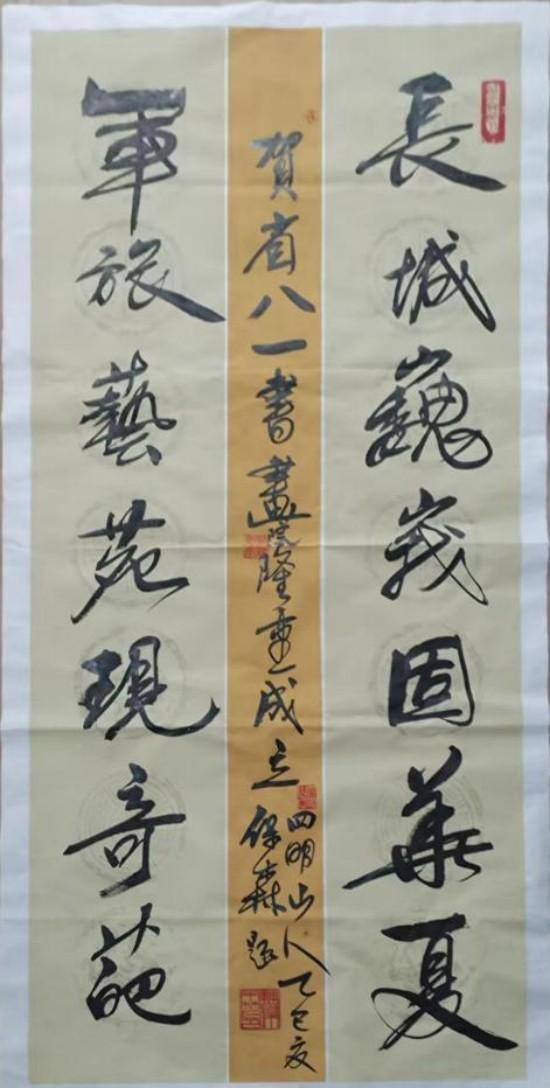 長城巍峩固華夏
賀省八一書畫院隆重成立
四明山人乙巳夏
保森題
軍旅藝苑現奇葩